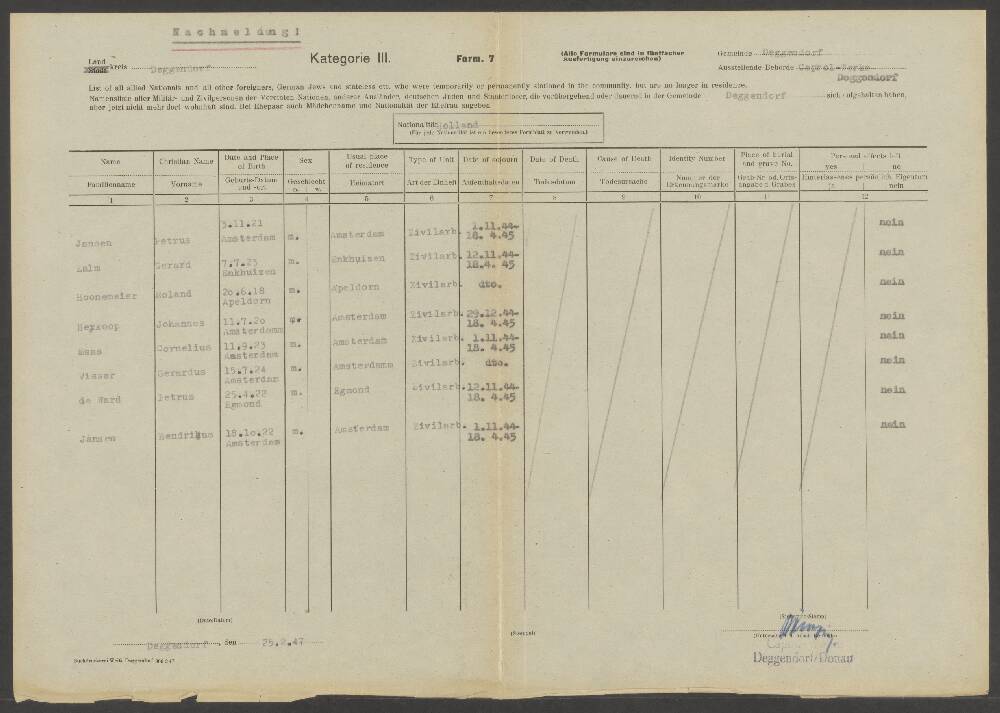 Nachmeldung!
Land
Stadt kreis Deggendorf
Kategorie III.
Form. 7
(Alle Formulare sind in fünffacher
Ausfertigung einzureichen)
Gemeinde Deggendorf
Ausstellende Behörde Deggendorf
List of all allied Nationals and all other foreigners, German Jews and stateless etc. who were temporarily or permanently stationed in the community, but are no longer in residence.
Namensliste aller Militär- und Zivilpersonen der Vereinten Nationen, anderer Ausländer, deutschen Juden und Staatenloser, die vorübergehend oder dauernd in der Gemeinde Deggendorf sich aufgehalten haben,
aber jetzt nicht mehr dort wohnhaft sind. Bei Ehepaar auch Mädchenname und Nationalität der Ehefrau angeben.
Nationalität: Holland
(Für jede Nationalität ist ein besonderes Formblatt zu verwenden.)
Name Christian Name Date and Place of Birth Sex Usual place of residence Type of Unit Date of sojourn Date of Death Cause of Death Identity Number Place of burial and grave No. Personal effects left yes no
Familienname Vorname Geburts-Datum und -ort Geschlecht m. w. Heimatort Art der Einheit Aufenthaltsdaten Todesdatum Todesursache Nummer der Erkennungsmarke Grab-Nr. od. Orts-angabe d. Grabes Hinterlassenes persönlich. Eigentum ja nein
1 2 3 4 5 6 7 8 9 10 11 12
Jansen Petrus 3.11.21 Amsterdam m. Amsterdam Zivilarb. 1.11.44- 18. 4.45 nein
Gerard 7.7.23 Enkhuizen m. Enkhuizen Zivilarb. 12.11.44- 18.4. 45 nein
Hoonemeier Roland 20.6.18 Apeldorn m. Apeldorn Zivilarb. dto. nein
Heykoop Johannes 11.7.20 Amsterdamm Amsterdam Zivilarb. 29.12.44- 18. 4.45 nein
Cornelius 11.9.23 Amsterdam m. Amsterdam Zivilarb. 1.11.44- 18. 4.45 nein
Visser Gerardus 15.7.24 Amsterdam m. Amsterdamm Zivilarb. dto. nein
de Ward Petrus 25.4.22 Egmond m. Egmond Zivilarb. 12.11.44- 18. 4.45 nein
Jansen Hendrikus 18.10.22 Amsterdam m. Amsterdam Zivilarb. 1.11.44- 18. 4.45 nein
(Ort u. Datum)
Deggendorf, den 25.2.47
Deggendorf/Donau